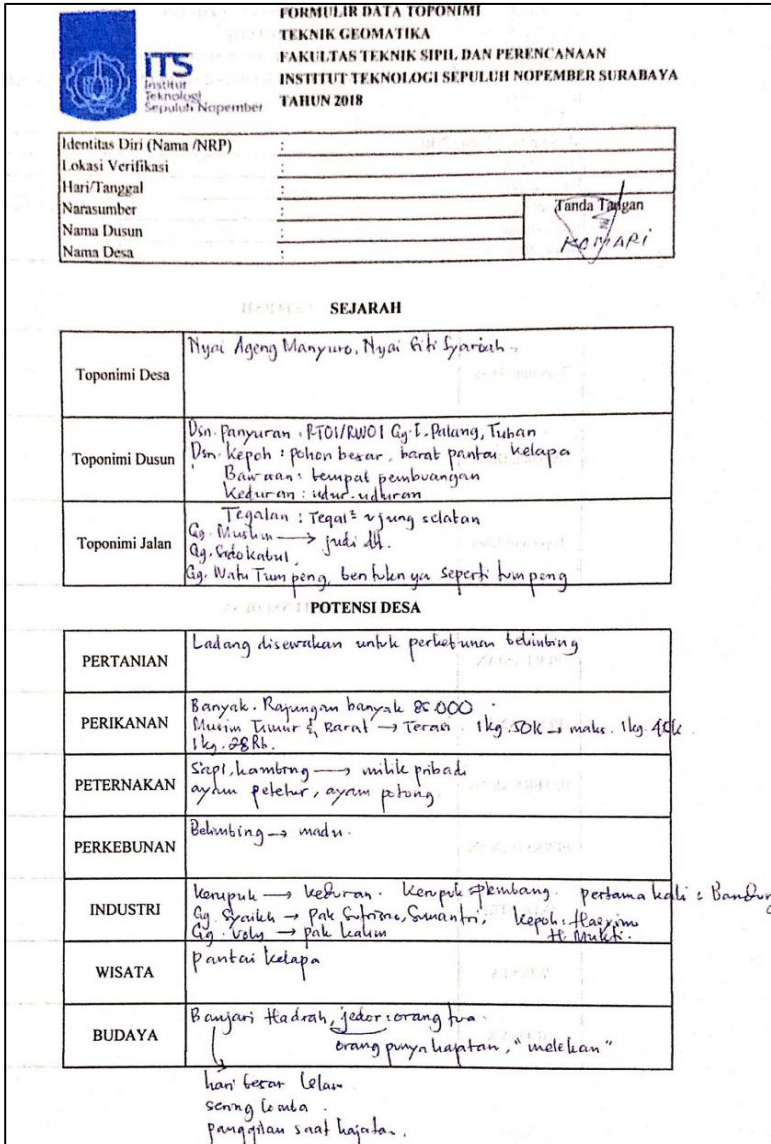 FORMULIR DATA TOPONIMI
TEKNIK GEOMATIKA
FAKULTAS TEKNIK SIPIL DAN PERENCANAAN
INSTITUT TEKNOLOGI SEPULUH NOPEMBER SURABAYA
TAHUN 2018
ITS
Institut
Teknologi
Sepuluh Nopember
Identitas Diri (Nama /NRP) :
Lokasi Verifikasi :
Hari/Tanggal :
Narasumber :
Nama Dusun :
Nama Desa :
Tanda Tangan
KOMARI
SEJARAH
Toponimi Desa
Nyai Ageng Manyuro, Nyai Siti Syariah.
Toponimi Dusun
Dsn. Panyuran : RT01/RW01 Gg. I. Palang, Tuban
Dsn. Kepoh : pohon besar, barat pantai kelapa
Bawaan : tempat pembuangan
Keduran : udur-uduran
Toponimi Jalan
Tegalan : Tegal = ujung selatan
Gg. Muslim → judi dll.
Gg. Sidokabul.
Gg. Watu Tumpeng, bentuknya seperti tumpeng
POTENSI DESA
PERTANIAN
Ladang disewakan untuk perkebunan belimbing
PERIKANAN
Banyak. Rajungan banyak
Musim Timur & Barat → Terasi. 1kg. 50K → maks. 1kg.
1kg. 28Rb.
PETERNAKAN
Sapi, kambing → milik pribadi
ayam petelur, ayam potong
PERKEBUNAN
Belimbing → madu.
INDUSTRI
Kerupuk → Keduran. Kerupuk pertama kali : Bandung
Gg. Syaikh → Pak Sutrisno, Sunantri, Kepoh :
Gg. Voly → pak Kalim H. Mukti.
WISATA
Pantai kelapa
BUDAYA
Banjari Hadrah, jedor : orang tua.
orang punya hajatan, "melekan"
hari besar Islam
sering lomba
panggilan saat hajatan.